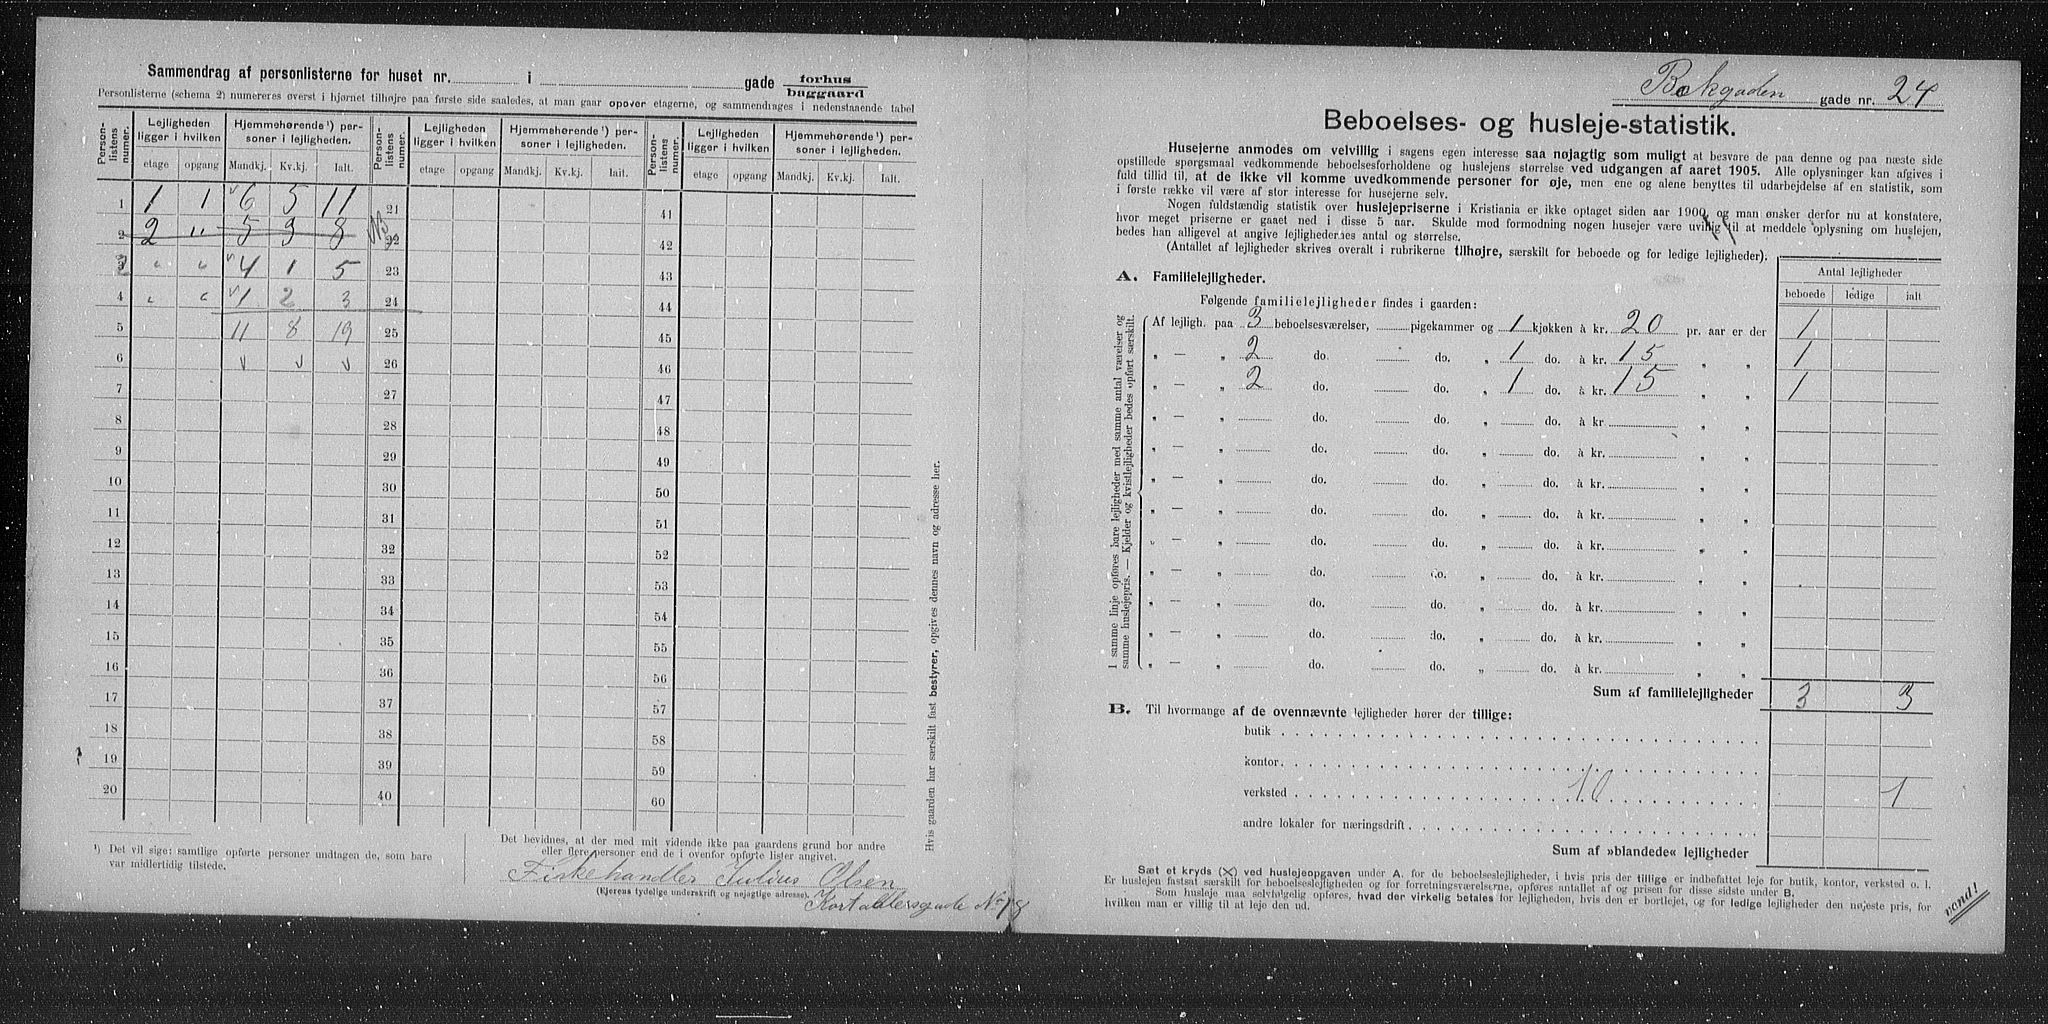 Sammendrag af personlisterne for huset nr. i gade forhus
baggaard
Personlisterne (schema 2) numereres øverst i hjørnet tilhøjre paa første side saaledes, at man gaar opover etagerne, og sammendrages i nedenstaaende tabel
Person-listens numer. Lejligheden ligger i hvilken Hjemmehørende ¹) personer i lejligheden. Person-listens numer. Lejligheden ligger i hvilken Hjemmehørende ¹) personer i lejligheden. Person-listens numer. Lejligheden ligger i hvilken Hjemmehørende ¹) personer i lejligheden.
etage opgang Mandkj. Kv.kj. Ialt. etage opgang Mandkj. Kv.kj. Ialt. etage opgang Mandkj. Kv.kj. Ialt.
1 1 1 6 5 11 21 41
2 2 " 5 3 8 22 42
3 " " 4 1 5 23 43
4 " " 1 2 3 24 44
5 11 8 19 25 45
6 v v v 26 46
7 27 47
8 28 48
9 29 49
10 30 50
11 31 51
12 32 52
13 33 53
14 34 54
15 35 55
16 36 56
17 37 57
18 38 58
19 39 59
20 40 60
¹) Det vil sige: samtlige opførte personer undtagen de, som bare
var midlertidig tilstede.
Det bevidnes, at der med mit vidende ikke paa gaardens grund bor andre
eller flere personer end de i ovenfor opførte lister angivet.
Fiskehandler Julius Olsen
(Ejerens tydelige underskrift og nøjagtige adresse).
No 18
Hvis gaarden har særskilt fast bestyrer, opgives dennes navn og adresse her.
gade nr. 24
Beboelses- og husleje-statistik.
Husejerne anmodes om velvillig i sagens egen interesse saa nøjagtig som muligt at besvare de paa denne og paa næste side
opstillede spørgsmaal vedkommende beboelsesforholdene og huslejens størrelse ved udgangen af aaret 1905. Alle oplysninger kan afgives i
fuld tillid til, at de ikke vil komme uvedkommende personer for øje, men ene og alene benyttes til udarbejdelse af en statistik, som
i første række vil være af stor interesse for husejerne selv.
Nogen fuldstændig statistik over huslejepriserne i Kristiania er ikke optaget siden aar 1900, og man ønsker derfor nu at konstatere,
hvor meget priserne er gaaet ned i disse 5 aar. Skulde mod formodning nogen husejer være uvillig til at meddele oplysning om huslejen,
bedes han alligevel at angive lejlighedernes antal og størrelse.
(Antallet af lejligheder skrives overalt i rubrikerne tilhøjre, særskilt for beboede og for ledige lejligheder).
A. Familielejligheder.
Antal lejligheder
beboede ledige ialt
Følgende familielejligheder findes i gaarden:
I samme linje opføres bare lejligheder med samme antal værelser og
samme huslejepris. — Kjelder og kvistlejligheder bedes opført særskilt.
Af lejligh. paa 3 beboelsesværelser, pigekammer og 1 kjøkken à kr. 20 pr. aar er der 1
„ — „ 2 do. do. „ 1 do. à kr. 15 „ „ 1
„ — „ 2 do. do. „ 1 do. à kr. 15 „ „ 1
„ — „ do. do. „ do. à kr. „ „
„ — „ do. do. „ do. à kr. „ „
„ — „ do. do. „ do. à kr. „ „
„ — „ do. do. „ do. à kr. „ „
„ — „ do. do. „ do. à kr. „ „
„ — „ do. do. „ do. à kr. „ „
„ — „ do. do. „ do. à kr. „ „
„ — „ do. do. „ do. à kr. „ „
„ — „ do. do. „ do. à kr. „ „
Sum af familielejligheder 3 3
B. Til hvormange af de ovennævnte lejligheder hører der tillige:
butik
kontor
verksted 10 1
andre lokaler for næringsdrift
Sum af »blandede« lejligheder
Sæt et kryds (X) ved huslejeopgaven under A. for de beboelseslejligheder, i hvis pris der tillige er indbefattet leje for butik, kontor, verksted o. l.
Er huslejen fastsat særskilt for beboelseslejligheden og for forretningsværelserne, opføres antallet af og prisen for disse sidste under B.
Som husleje maa selvfølgelig opføres, hvad der virkelig betales for lejligheden, hvis den er bortlejet, og for ledige lejligheder den nøjeste pris, for
hvilken man er villig til at leje den ud.
vend!